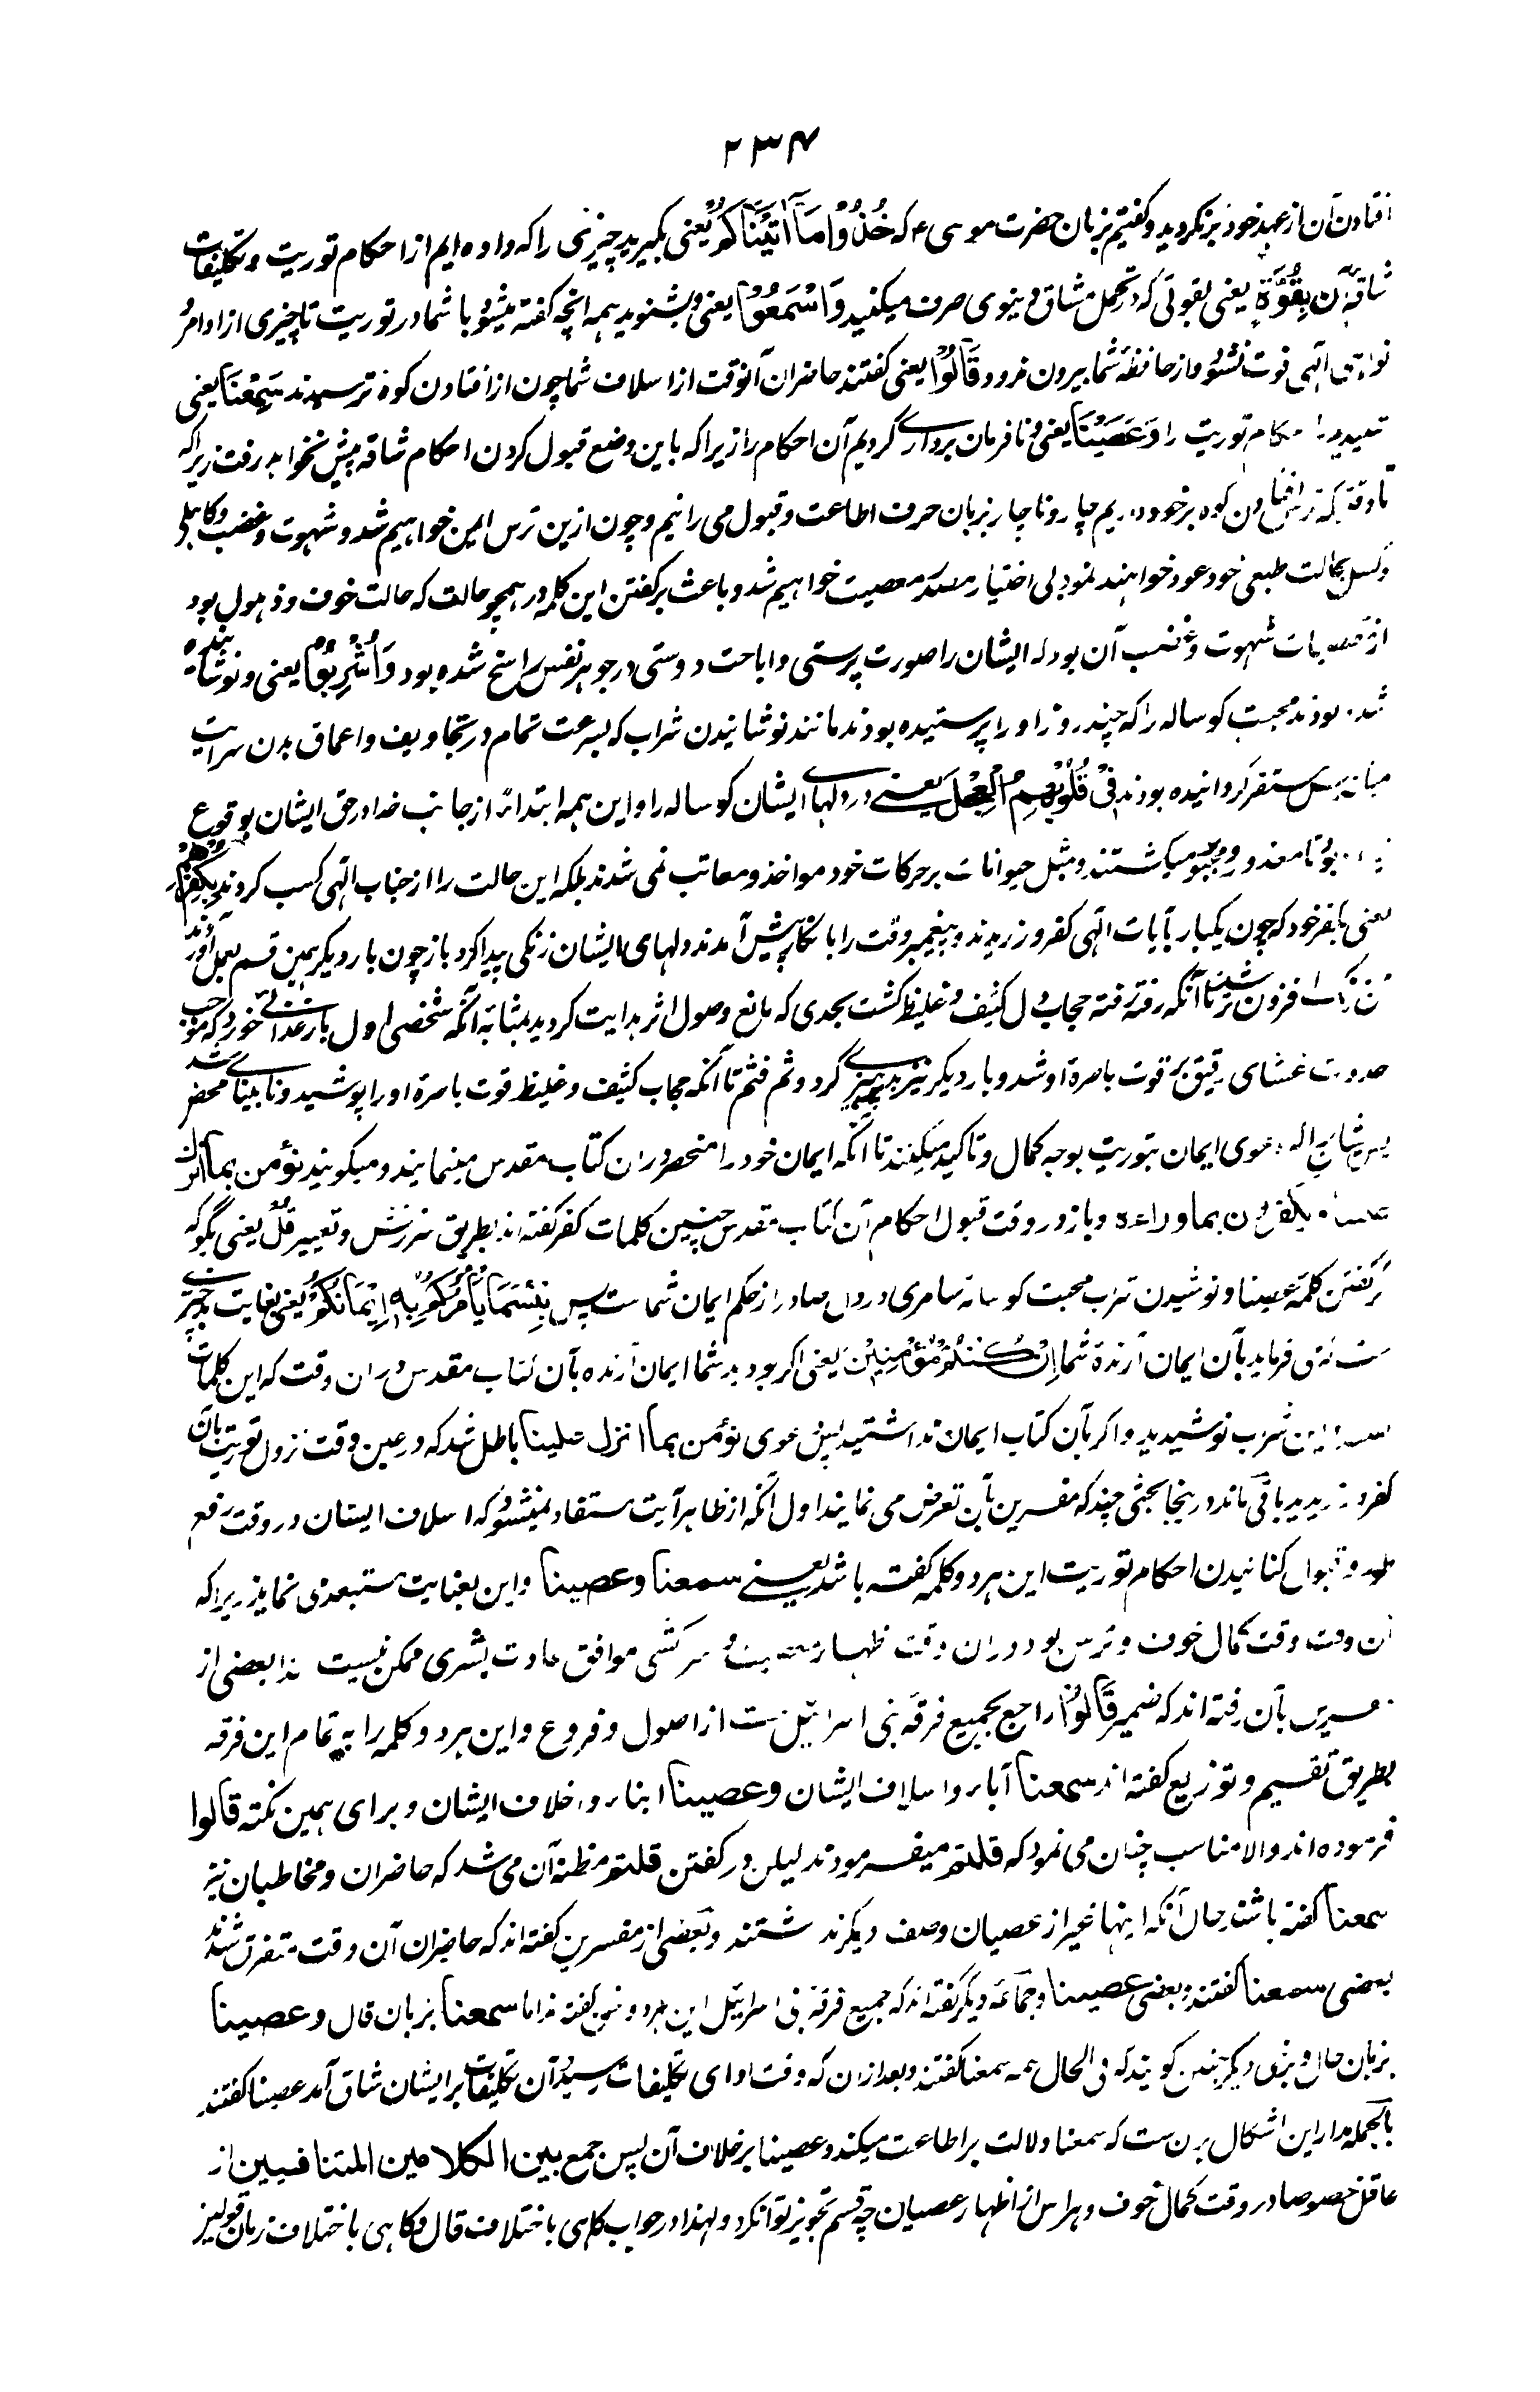 ۲۳۴
افتادن آن از عهد خود برنگردید و گفتیم بزبان حضرت موسی ع که خُذُوْا مَآ اٰتَیْنَاكُمْ یعنی بگیرید چیزی را که داده ایم از احکام توریت و تکلیفات
شاقهٔ آن بِقُوَّةٍ یعنی بقوتی که در تحمل مشاق دنیوی صرف میکنید وَاسْمَعُوْا یعنی و بشنوید همه انچه گفته میشود با شما در توریت تا چیزی از اوامر و
نواهی الٰهی فوت نشود و از حافظهٔ شما بیرون نرود قَالُوْا یعنی گفتند حاضران آنوقت از اسلاف شما چون از افتادن کوه ترسیدند سَمِعْنَا یعنی
احکام توریت را وَعَصَیْنَا یعنی و نافرمان برداری کردیم آن احکام را زیرا که باین وضع قبول کردن احکام شاقه پیش نخواهد رفت زیرا که
تا وقتیکه ترس افتادن کوه بر خود داریم چار و ناچار بزبان حرف اطاعت و قبول می رانیم و چون ازین ترس ایمن خواهیم شد و شهوت و غضب و کاهلی
و کسل بحالت طبعی خود عود خواهند نمود بی اختیار معصیت خواهیم شد و باعث بر گفتن این کلمه در همچو حالت که حالت خوف و ذهول بود
از شهوت و غضب آن بود که ایشان را صورت پرستی و اباحت دوستی در جوهر نفس راسخ شده بود وَاُشْرِبُوْا یعنی و نوشانیده
شده بودند محبت گوساله را که چند روز او را پرستیده بودند مانند نوشانیدن شراب که بسرعت تمام در تجاویف و اعماق بدن سرایت
مستقر گردانیده بودند فِیْ قُلُوْبِهِمُ الْعِجْلَ یعنی در دلهای ایشان گوساله را و این همه ابتداءً از جانب خدا در حق ایشان بوقوع
تا معذور و مجبور میگشتند و مثل حیوانات بر حرکات خود مواخذ و معاتب نمی شدند بلکه این حالت را از جناب الٰهی کسب کردند بِكُفْرِهِمْ
یعنی بکفر خود که چون یکبار بآیات الٰهی کفر ورزیدند و پیغمبر وقت را بانکار پیش آمدند دلهای ایشان زنگی پیدا کرد باز چون بار دیگر همین قسم بعمل آوردند
آن زنگ افزون تر شد تا آنکه رفته رفته حجاب دل کثیف و غلیظ گشت بحدی که مانع وصول اثر هدایت گردید بمثابه آنکه شخصی اول بار غذائی خورد که موجب
حدوث غشای رقیق بر قوت باصرهٔ او شد و بار دیگر نیز بد پرهیزی کرد و ثم فثم تا آنکه حجاب کثیف و غلیظ قوت باصرهٔ او را پوشید و نابینای محض شد
دعوی ایمان بتوریت بوجه کمال و تاکید میکنند تا آنکه ایمان خود را منحصر در ان کتاب مقدس مینمایند و میگویند نؤمن بما انزل
علینا و یکفرون بما وراءه و باز در وقت قبول احکام آن کتاب مقدس چنین کلمات کفر گفته اند بطریق سرزنش و تعییر قُلْ یعنی بگو که
گر گفتن کلمهٔ عصینا و نوشیدن شراب محبت گوساله سامری در دل صادر از حکم ایمان شماست پس بِئْسَمَا یَاْمُرُكُمْ بِهٖ اِیْمَانُكُمْ یعنی بغایت بد چیزی
ست که می فرماید بآن ایمان آرندهٔ شما اِنْ كُنْتُمْ مُؤْمِنِیْنَ یعنی اگر بودید شما ایمان آرنده بآن کتاب مقدس در ان وقت که این کلمات
شراب نوشیدید و اگر بآن کتاب ایمان نداشتید پس دعوی نؤمن بما انزل علینا باطل شد که در عین وقت نزول توریت بآن
کفر ورزیدید باقی ماند در ینجا بحثی چند که مفسرین بآن تعرض می نمایند اول آنکه از ظاهر آیت مستفاد میشود که اسلاف ایشان در وقت رفع
طور و قبول کنانیدن احکام توریت این هر دو کلمه گفته باشند یعنی سمعنا و عصینا و این بغایت مستبعد می نماید زیرا که
آن وقت وقت کمال خوف و ترس بود در ان وقت ظهار و سرکشی موافق عادت بشری ممکن نیست لهذا بعضی از
مفسرین بآن رفته اند که ضمیر قَالُوْا راجع بجمیع فرقهٔ بنی اسرائیل ست از اصول و فروع و این هر دو کلمه را به تمام این فرقه
بطریق تقسیم و توزیع گفته اند سمعنا آباء و اسلاف ایشان و عصینا ابناء و اخلاف ایشان و برای همین نکته قالوا
فرموده اند والا مناسب چنان می نمود که قلتم میفرمودند لیکن در گفتن قلتم مظنه آن می شد که حاضران و مخاطبان نیز
سمعنا گفته باشند حال آنکه اینها غیر از عصیان وصف دیگر نداشتند و بعضی از مفسرین گفته اند که حاضران آن وقت متفرق شدند
بعضی سمعنا گفتند و بعضی عصینا و جماعهٔ دیگر گفته اند که جمیع فرقهٔ بنی اسرائیل این هر دو سخن گفته اند اما سمعنا بزبان قال و عصینا
بزبان حال و بعضی دیگر چنین گویند که فی الحال همه سمعنا گفتند و بعد ازان که وقت ادای تکلیفات رسید و آن تکلیفات بر ایشان شاق آمد عصینا گفتند
بالجمله مدار این اشکال بر آن ست که سمعنا دلالت بر اطاعت میکند و عصینا بر خلاف آن پس جمع بین الکلامین المتنافیین از
عاقل خصوصا در وقت کمال خوف و هراس از اظهار عصیان چه قسم تجویز توان کرد و لهذا در جواب گاهی باختلاف قال و گاهی باختلاف زمان قول نیز